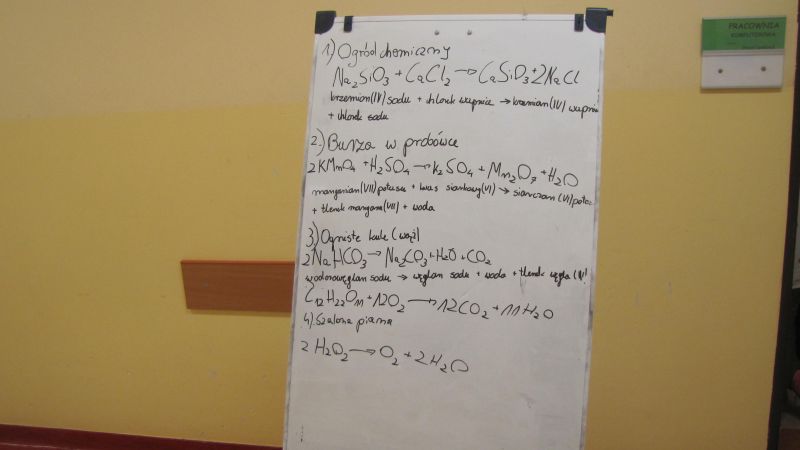 1) Ogród chemiczny
Na₂SiO₃ + CaCl₂ → CaSiO₃ + 2NaCl
krzemian(IV) sodu + chlorek wapnia → krzemian(IV) wapnia
+ chlorek sodu
2.) Burza w probówce
2KMnO₄ + H₂SO₄ → K₂SO₄ + Mn₂O₇ + H₂O
manganian(VII) potasu + kwas siarkowy(VI) → siarczan(VI) potas
+ tlenek manganu(VII) + woda
3.) Ogniste kule (wąż)
2NaHCO₃ → Na₂CO₃ + H₂O + CO₂
wodorowęglan sodu → węglan sodu + woda + tlenek węgla (IV)
C₁₂H₂₂O₁₁ + 12O₂ → 12CO₂ + 11H₂O
4). Szalona piana
2 H₂O₂ → O₂ + 2H₂O
PRACOWNIA
KOMPUTEROWA